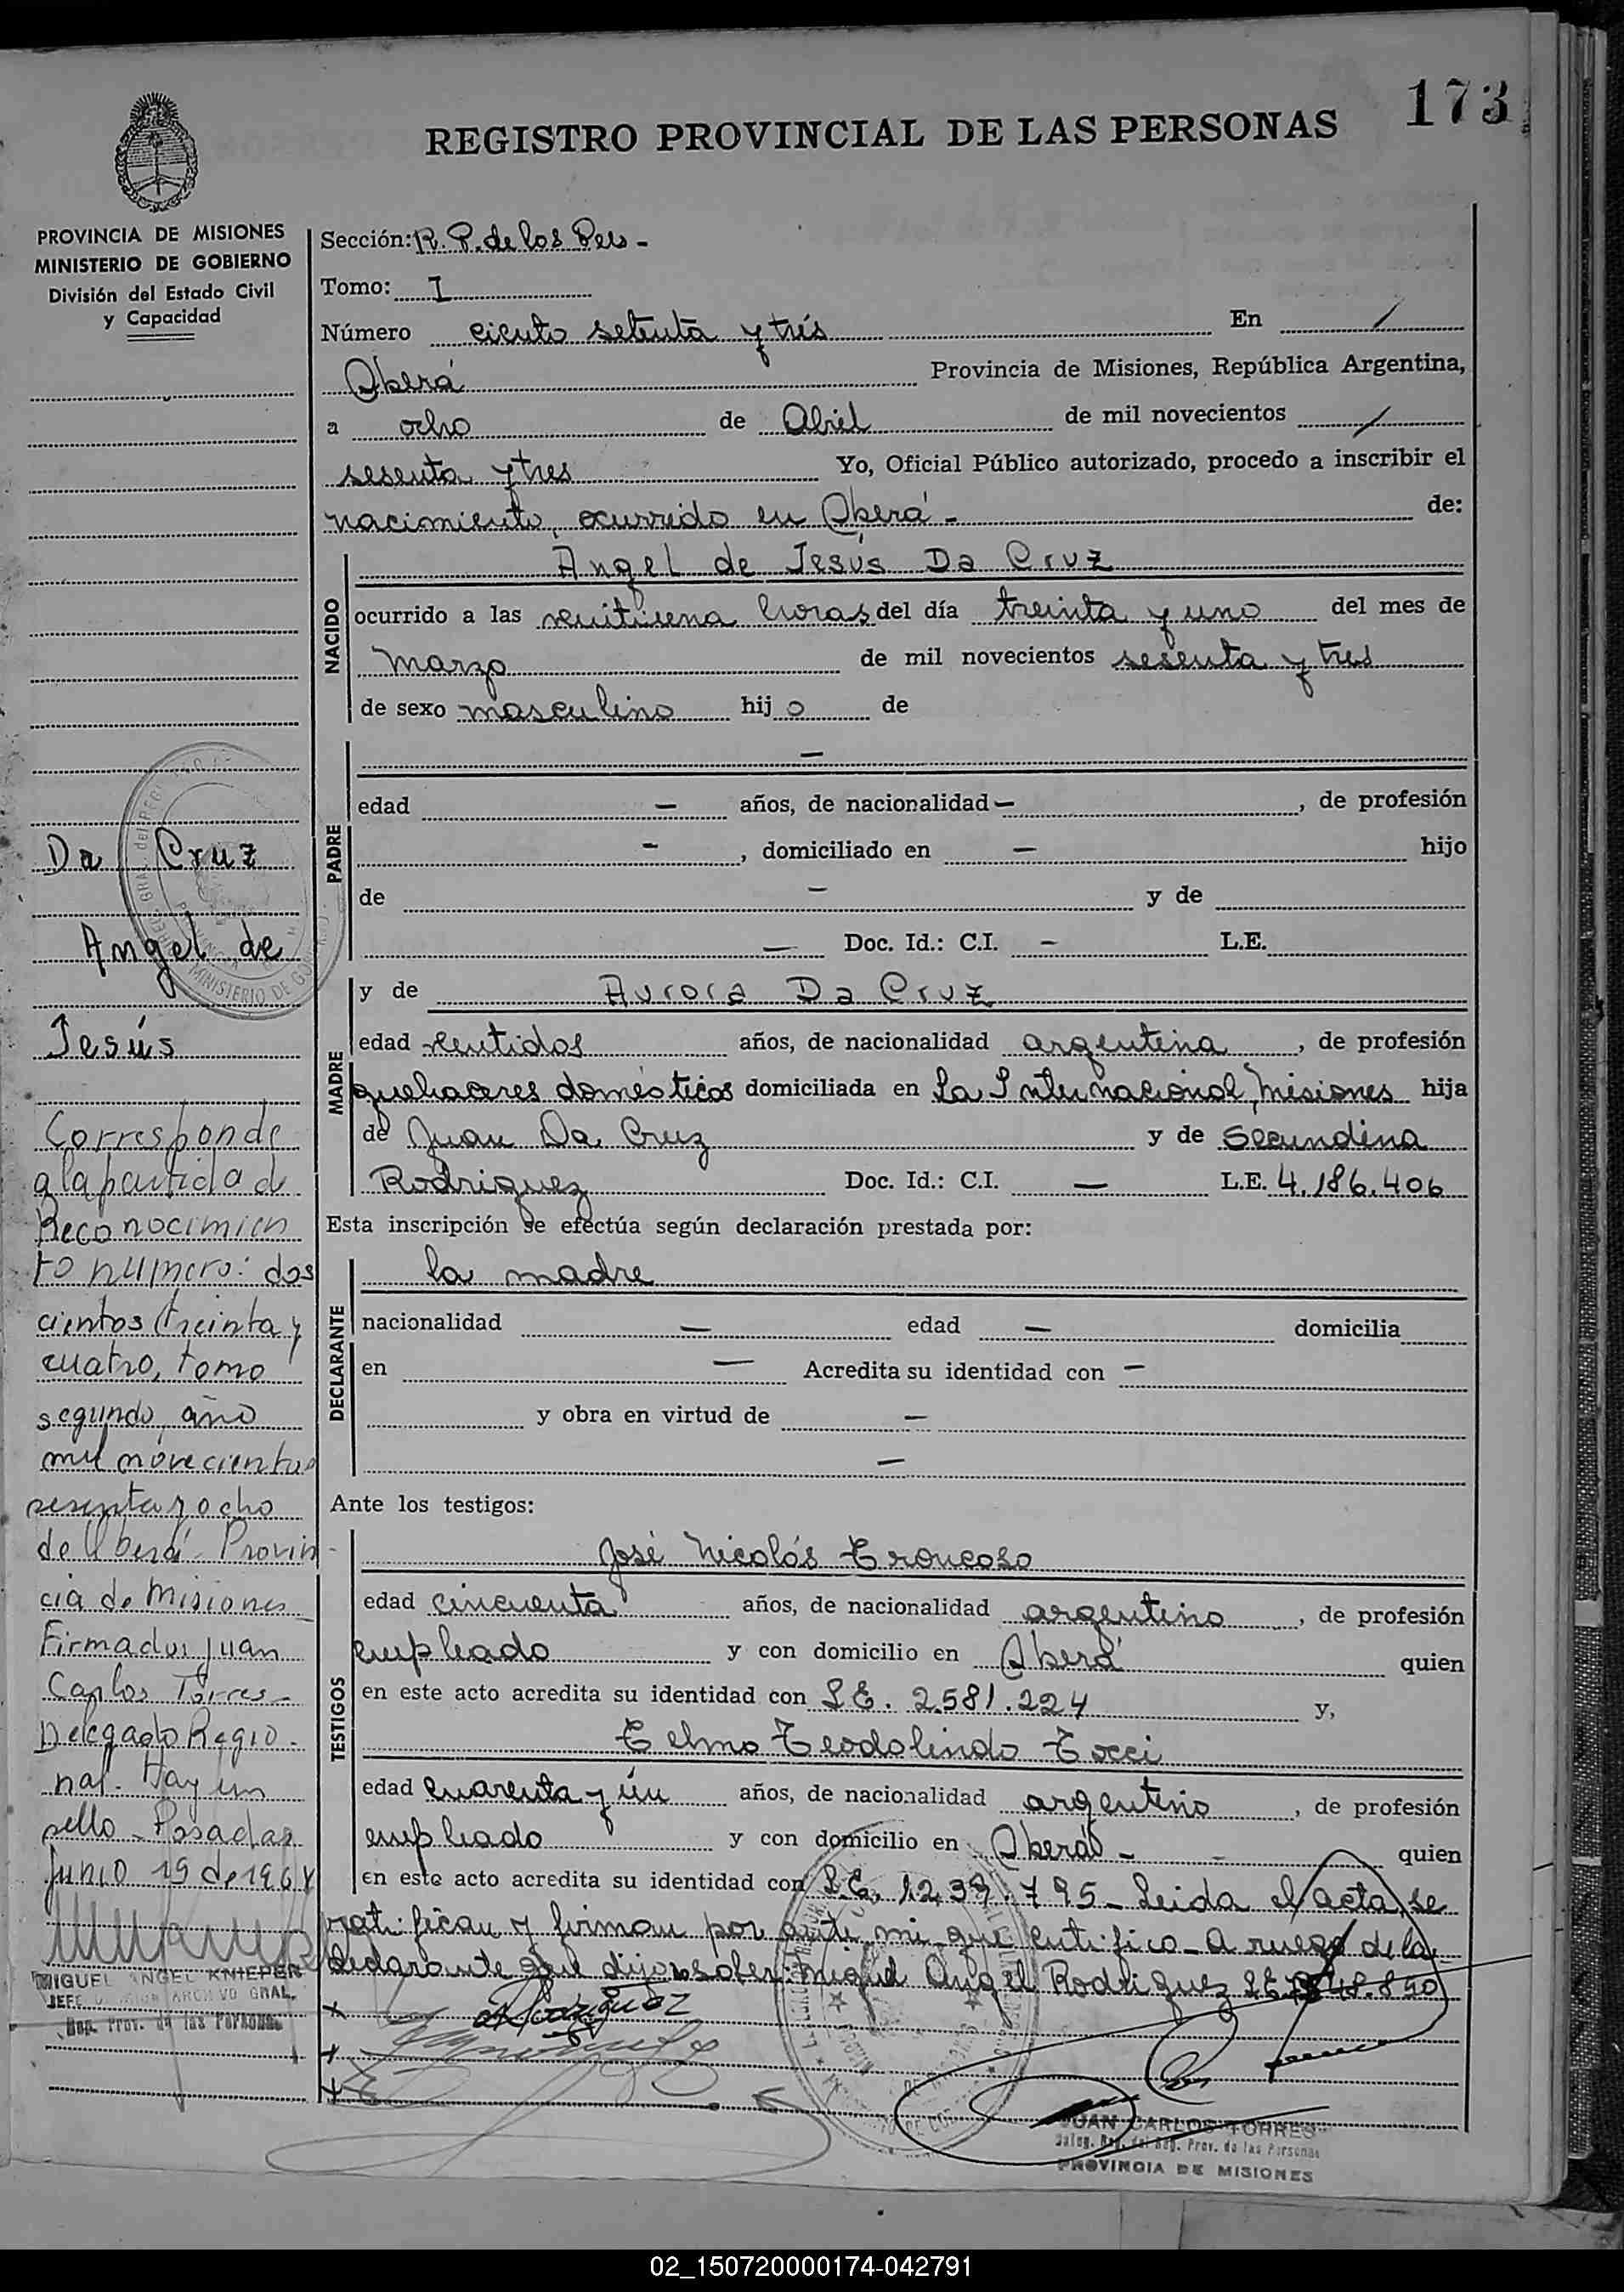 173
REGISTRO PROVINCIAL DE LAS PERSONAS
PROVINCIA DE MISIONES
MINISTERIO DE GOBIERNO
División del Estado Civil
y Capacidad
Da Cruz
Angel de
Jesús
Corresponde
a la partida d
Reconocimien
to numero: dos
cientos treinta y
cuatro, tomo
segundo, año
mil novecientos
sesenta y ocho
de Oberá - Provin
cia de Misiones
Firmados Juan
Carlos Torres -
Delegado Regio -
nal. Hay un
sello - Posadas
Junio 19 de 196
MIGUEL ANGEL KNIEPER
JEFE ARCHIVO GRAL.
Rep. Prov. de las Personas
Sección: R. P. de los Pers -
Tomo: I
Número ciento setenta y trés En /
Oberá Provincia de Misiones, República Argentina,
a ocho de Abril de mil novecientos /
sesenta y tres Yo, Oficial Público autorizado, procedo a inscribir el
nacimiento, ocurrido en Oberá - de:
NACIDO
Angel de Jesús Da Cruz
ocurrido a las veintiuna horas del día treinta y uno del mes de
marzo de mil novecientos sesenta y tres
de sexo masculino hijo de
PADRE
—
edad — años, de nacionalidad — , de profesión
- , domiciliado en — hijo
de — y de
— Doc. Id.: C.I. — L.E.
MADRE
y de Aurora Da Cruz
edad ventidos años, de nacionalidad argentina , de profesión
quehaceres domésticos domiciliada en La Internacional, Misiones hija
de Juan Da Cruz y de Secundina
Rodriguez Doc. Id.: C.I. — L.E. 4.186.406
Esta inscripción se efectúa según declaración prestada por:
DECLARANTE
la madre
nacionalidad — edad — domicilia
en — Acredita su identidad con —
y obra en virtud de —
—
Ante los testigos:
TESTIGOS
José Nicolás Troncoso
edad cincuenta años, de nacionalidad argentino , de profesión
empleado y con domicilio en Oberá quien
en este acto acredita su identidad con L.E. 2.581.224 y,
Telmo Teodolindo Tocci
edad cuarenta y ún años, de nacionalidad argentino , de profesión
empleado y con domicilio en Oberá - quien
en este acto acredita su identidad con L.E. 1.239.795 - Leida el acta, se
ratifican y firman por ante mi que certifico - A ruego de la
declarante que dijo no saber: Miguel Angel Rodriguez L.E.
Rodriguez
JUAN CARLOS TORRES
Deleg. Reg. del Reg. Prov. de las Personas
PROVINCIA DE MISIONES
02_150720000174-042791